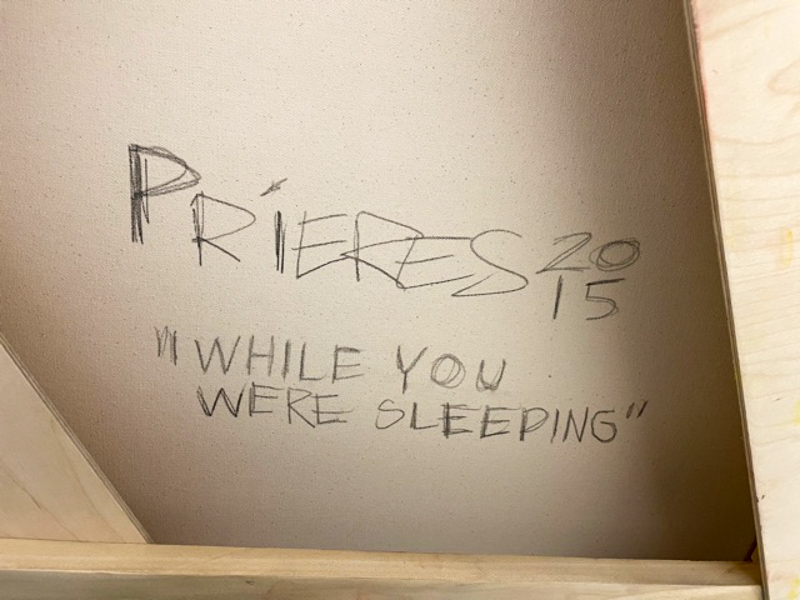 PRÍERES 20
15
"WHILE YOU
WERE SLEEPING"